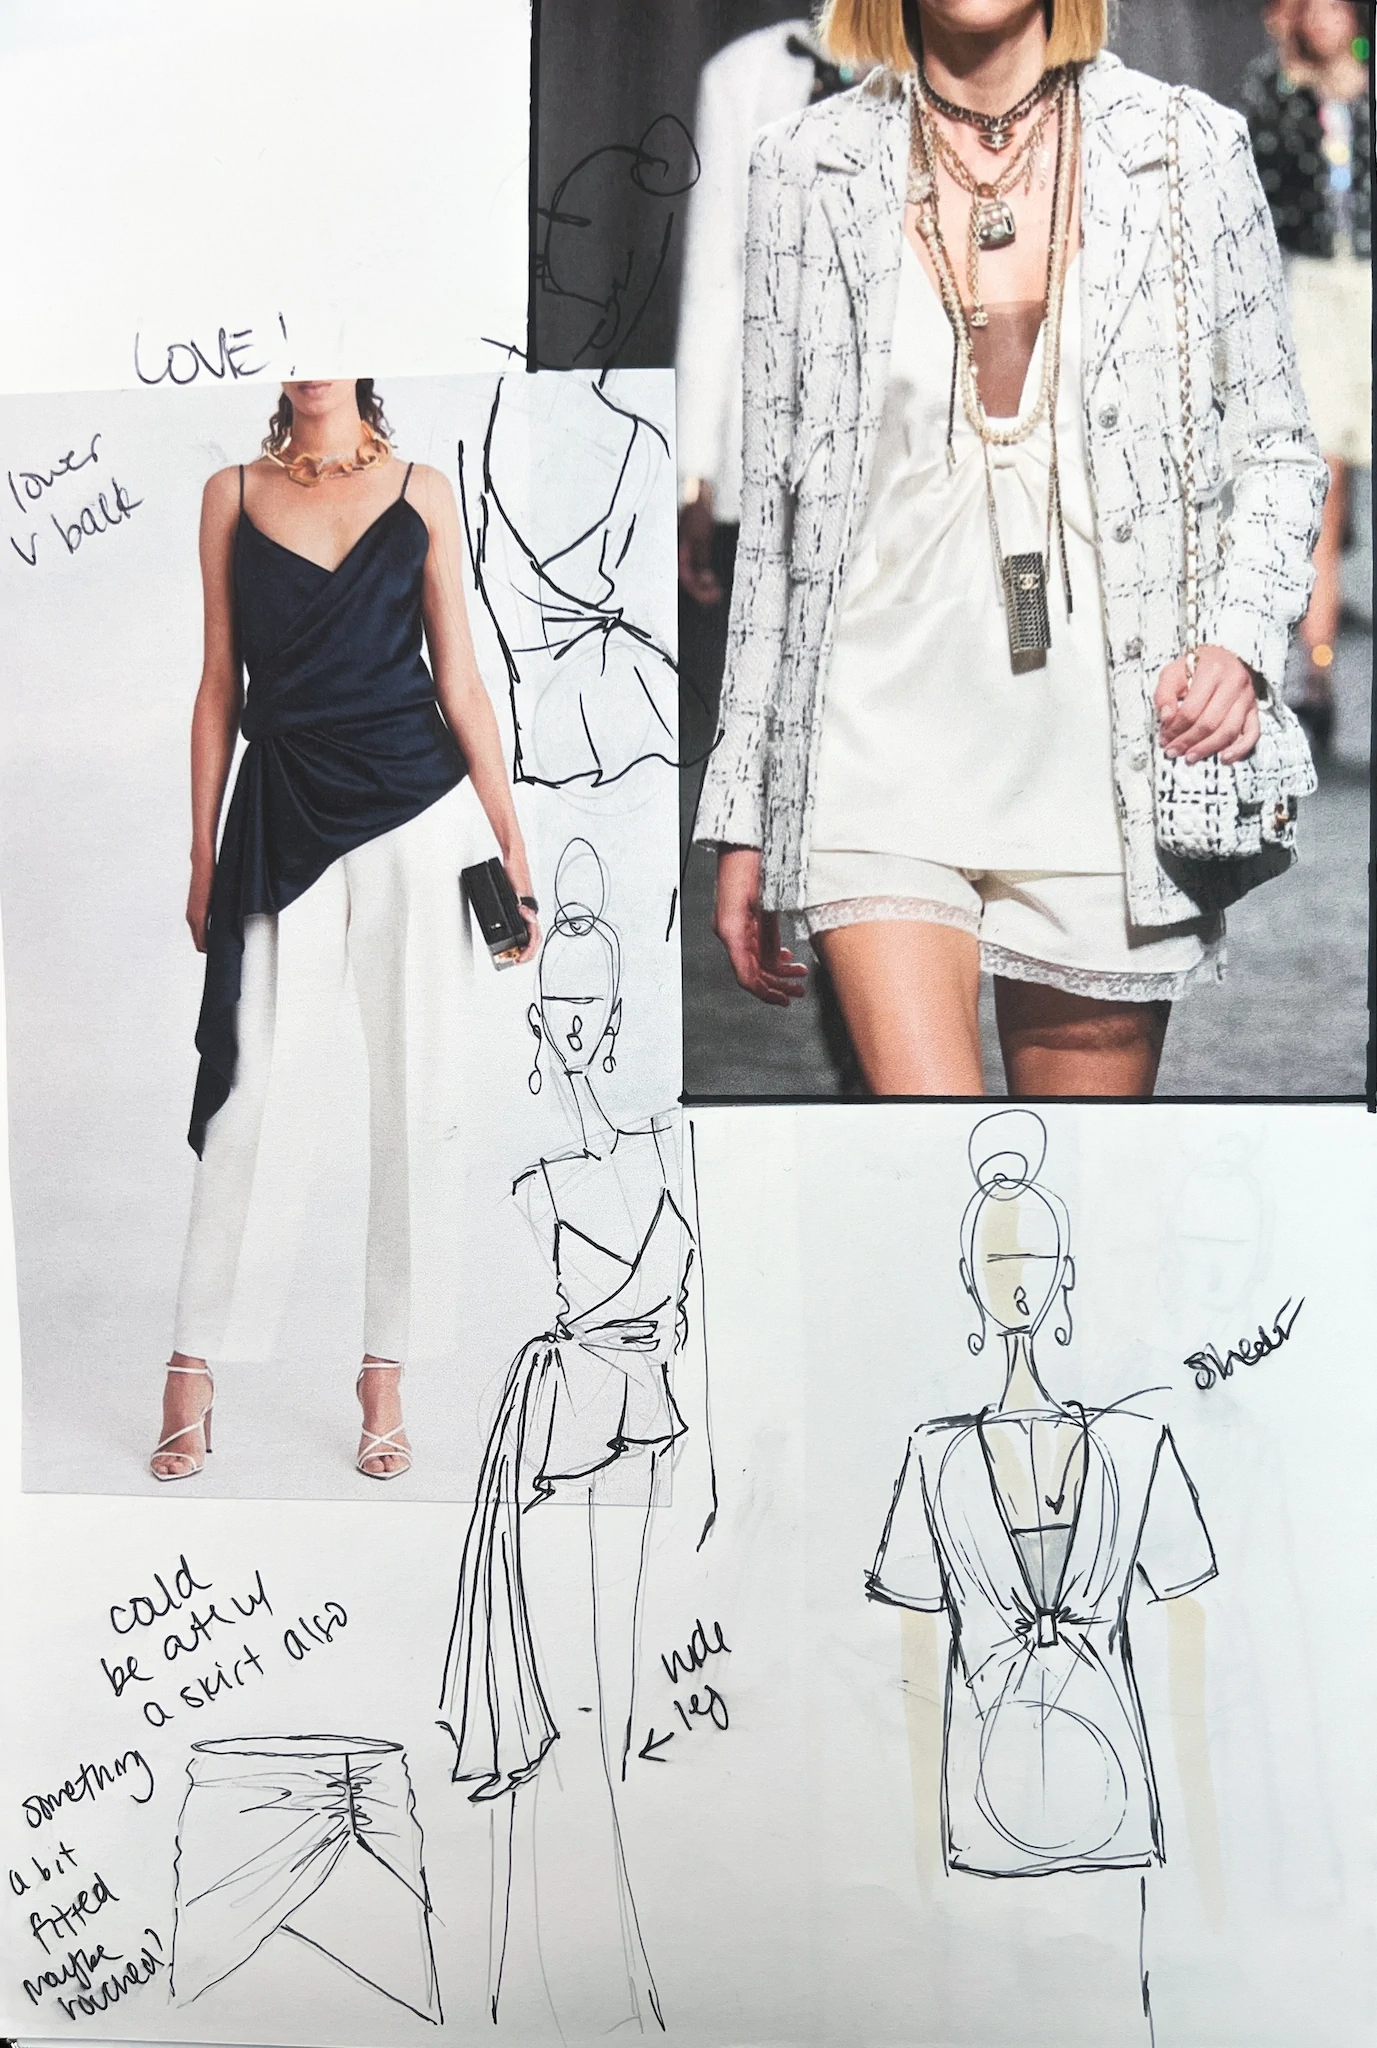 LOVE!
lower
v back
Sheer
could
be cute w/
a skirt also
wide
leg
something
a bit
fitted
maybe
rouched?